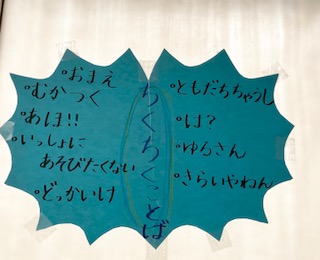 ちくちくことば
°ともだちちゃうし
°は?
°ゆるさん
°きらいやねん
°おまえ
°むかつく
°あほ!!
°いっしょに
あそびたくない
°どっかいけ